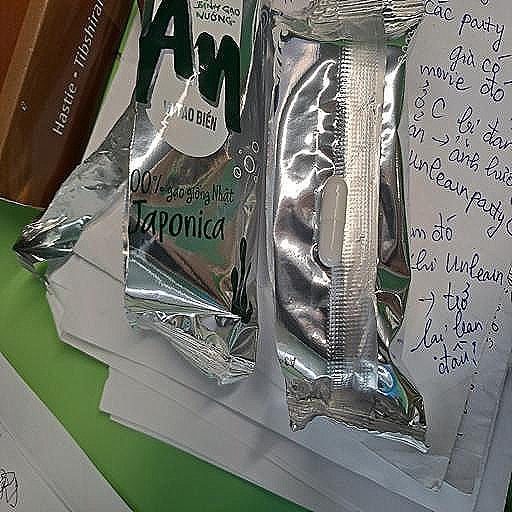 Hastie • Tibshiran
BÁNH GẠO
NƯỚNG
An
VỊ TẢO BIỂN
00% gạo giống Nhật
Japonica
các party
giả có
movie đó
ở C bị đan
ản → ảnh hưở
unlearn party C
đó
unlearn
→ trở
lại ban
đầu?